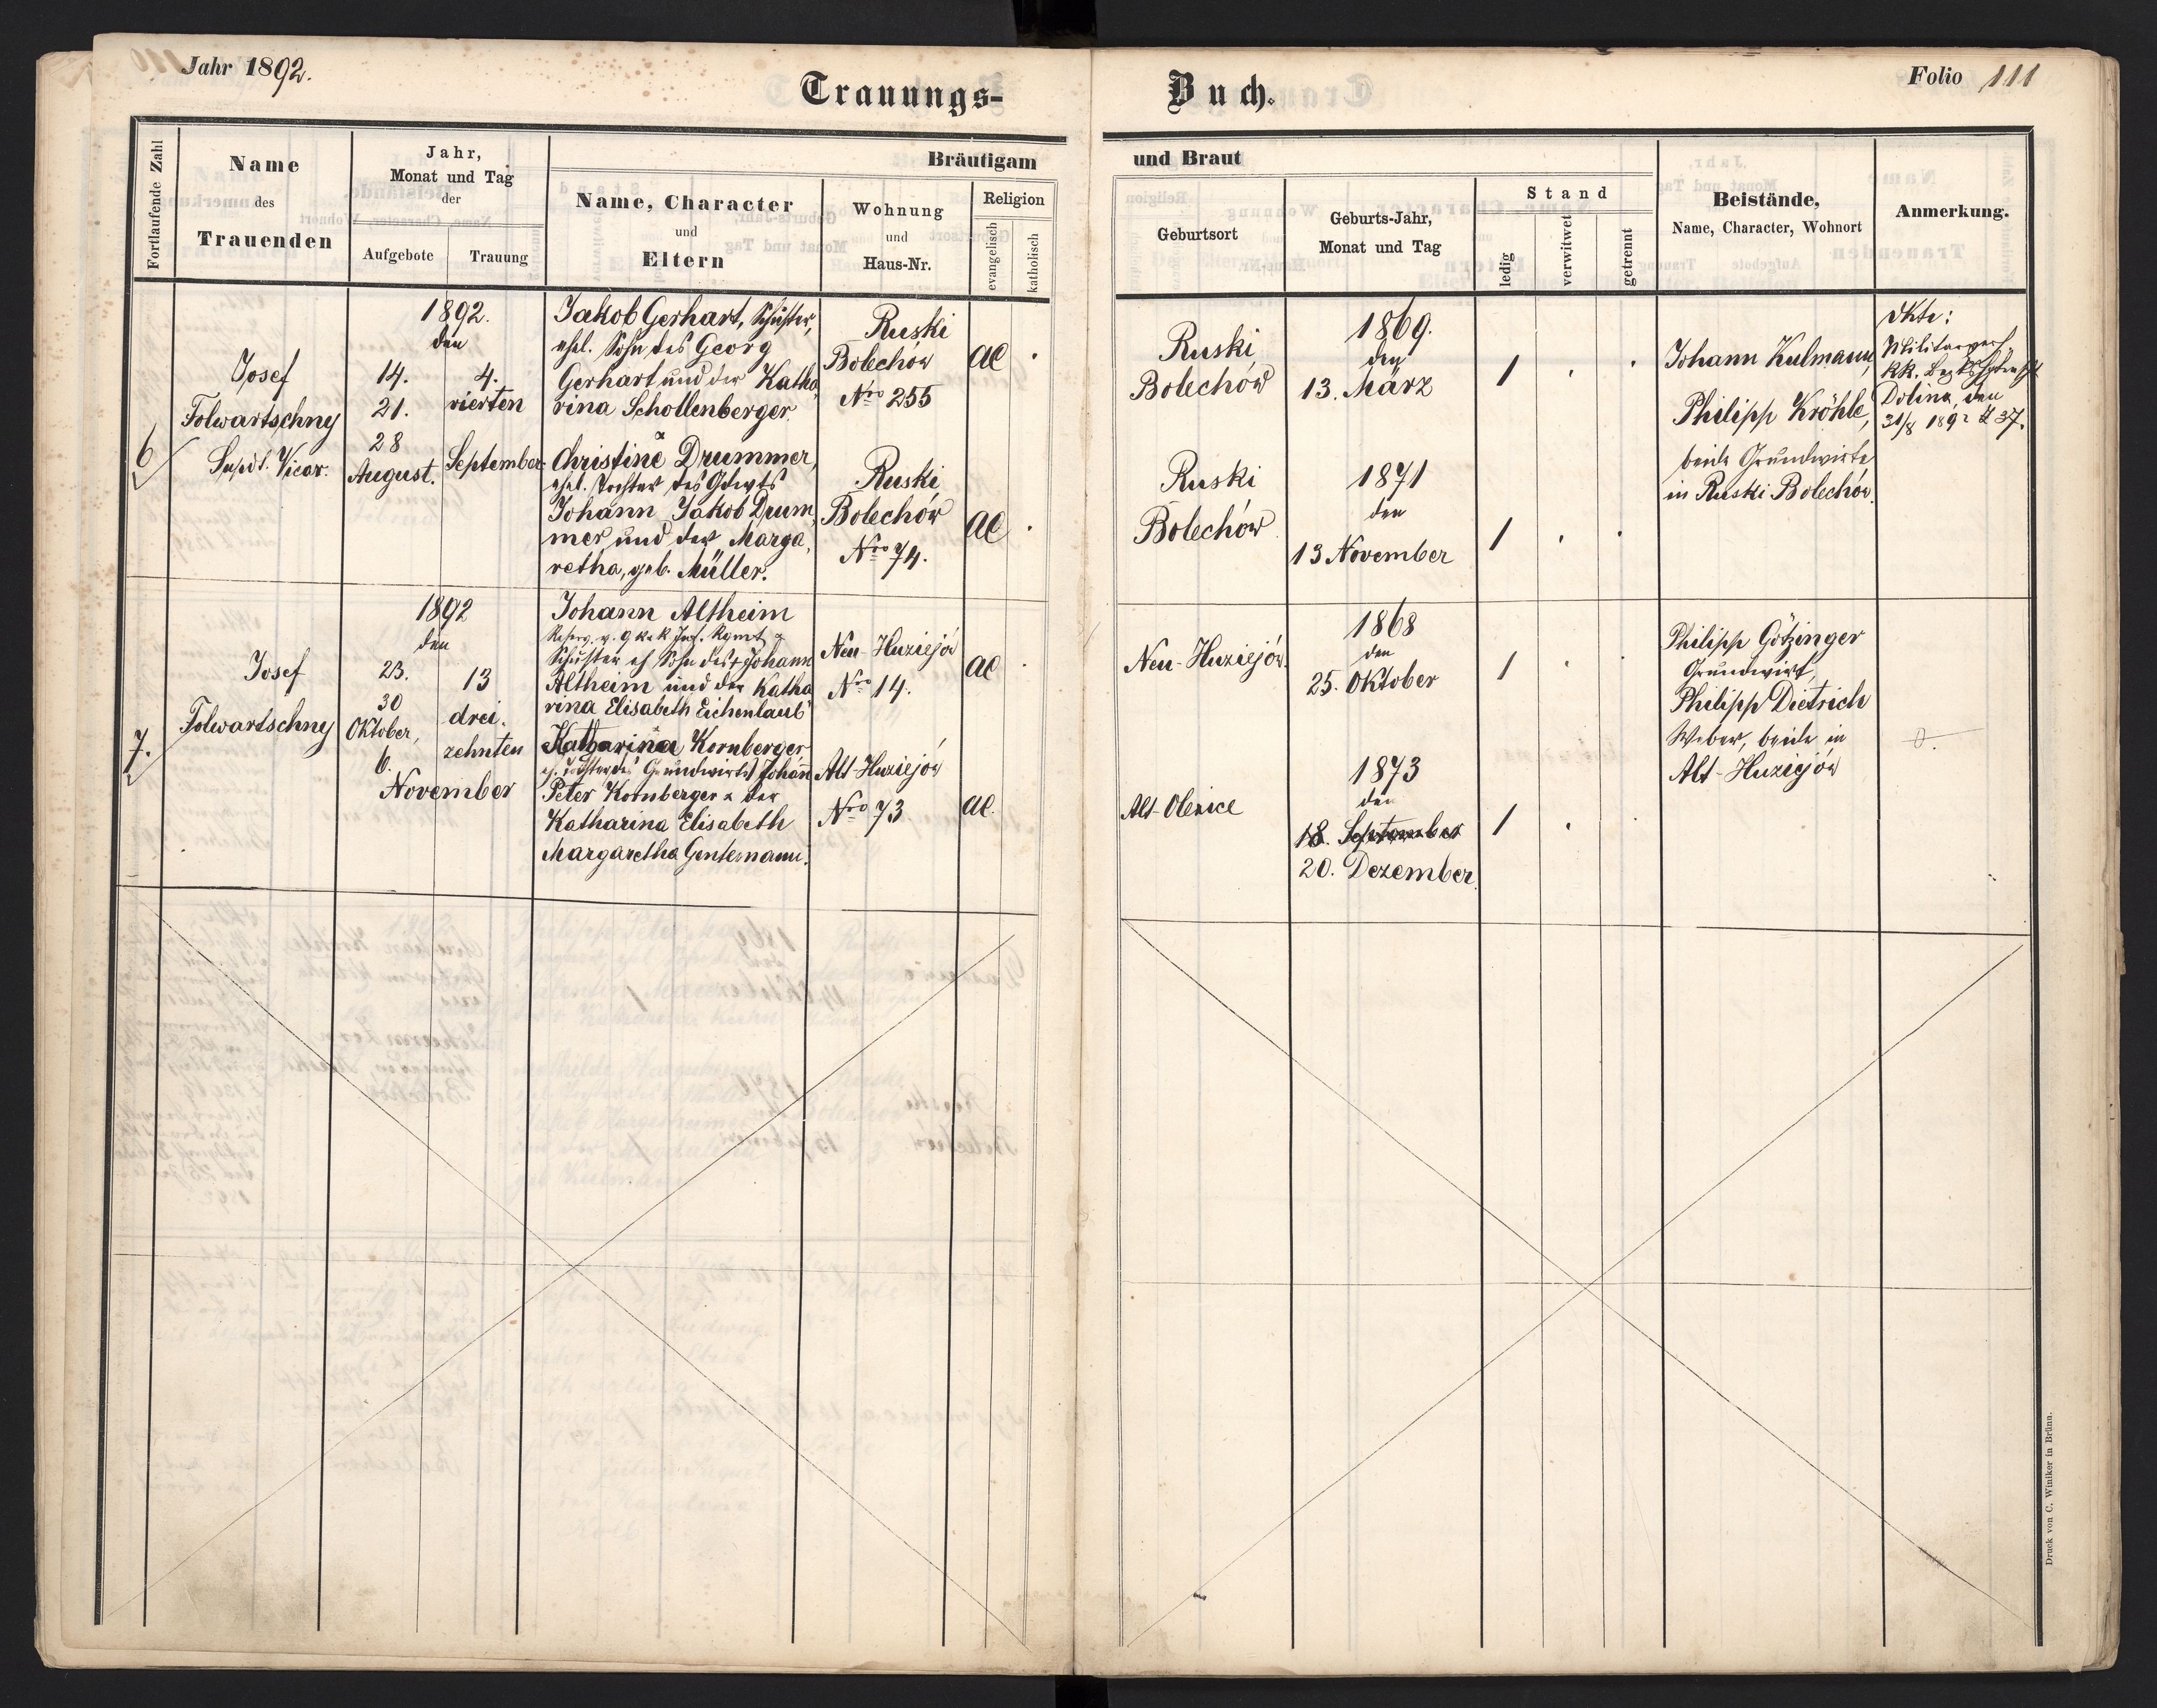 Jahr 1892.
Trauungs-
Buch.
Folio 111
Fortlaufende Zahl
Name
des
Trauenden
Jahr,
Monat und Tag
der
Aufgebote
Trauung
Bräutigam
Name, Character
und
Eltern
Wohnung
und
Haus-Nr.
Religion
evangelisch
katholisch
und Braut
Geburtsort
Geburts-Jahr,
Monat und Tag
Stand
ledig
verwitwet
getrennt
Beistände,
Name, Character, Wohnort
Anmerkung.
6
Josef
Folwartschny
Supdt. Vicar.
1892.
den
14.
21.
28
August.
4.
vierten
September
Jakob Gerhart, Schuster,
ehel. Sohn des Georg
Gerhart und der Katha
rina Schollenberger.
Ruski
Bolechów
Nro 255
ae
Ruski
Bolechów
1869.
den
13. März
1
Christine Drummer,
ehel. Tochter des Gdwts
Johann Jakob Drum
mer und der Marga,
retha, geb. Müller.
Ruski
Bolechów
Nro 74.
ae
Ruski
Bolechów
1871
den
13 November
1
Johann Kulmann,
Philipp Kröhle,
beide Grundwirte
in Ruski Bolechów.
Dolina, den
31/8 1892 Z 37.
7.
Josef
Folwartschny
1892
den
23.
30
Oktober,
6.
November
13
drei.
zehnten
Johann Altheim
Reserv. v. 9 k u k Inf. Rgmt &
Schuster eh Sohn des + Johann
Altheim und der Katha
rina Elisabeth Eichenlaub
Neu-Huziejów
Nro 14.
ae
Neu-Huziejów.
1868
den
25. Oktober
1
Katharina Kornberger
eh. Tochter des Grundwirts Johann
Peter Kornberger & der
Katharina Elisabeth
Margaretha Gentemann.
Alt-Huziejów
Nro 73
ae.
Alt-Olexice
1873
den
18. September
20. Dezember.
1
Philipp Götzinger
Grundwirt,
Philipp Dietrich
Weber, beide in
Alt-Huziejów
Druck von C. Winiker in Brünn.